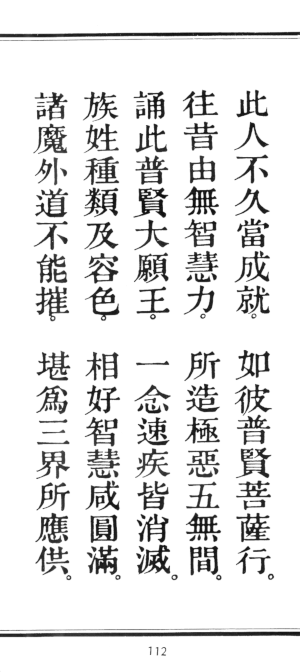 此人不久當成就。如彼普賢菩薩行。
往昔由無智慧力。所造極惡五無間。
誦此普賢大願王。一念速疾皆消滅。
族姓種類及容色。相好智慧咸圓滿。
諸魔外道不能摧。堪為三界所應供。
112